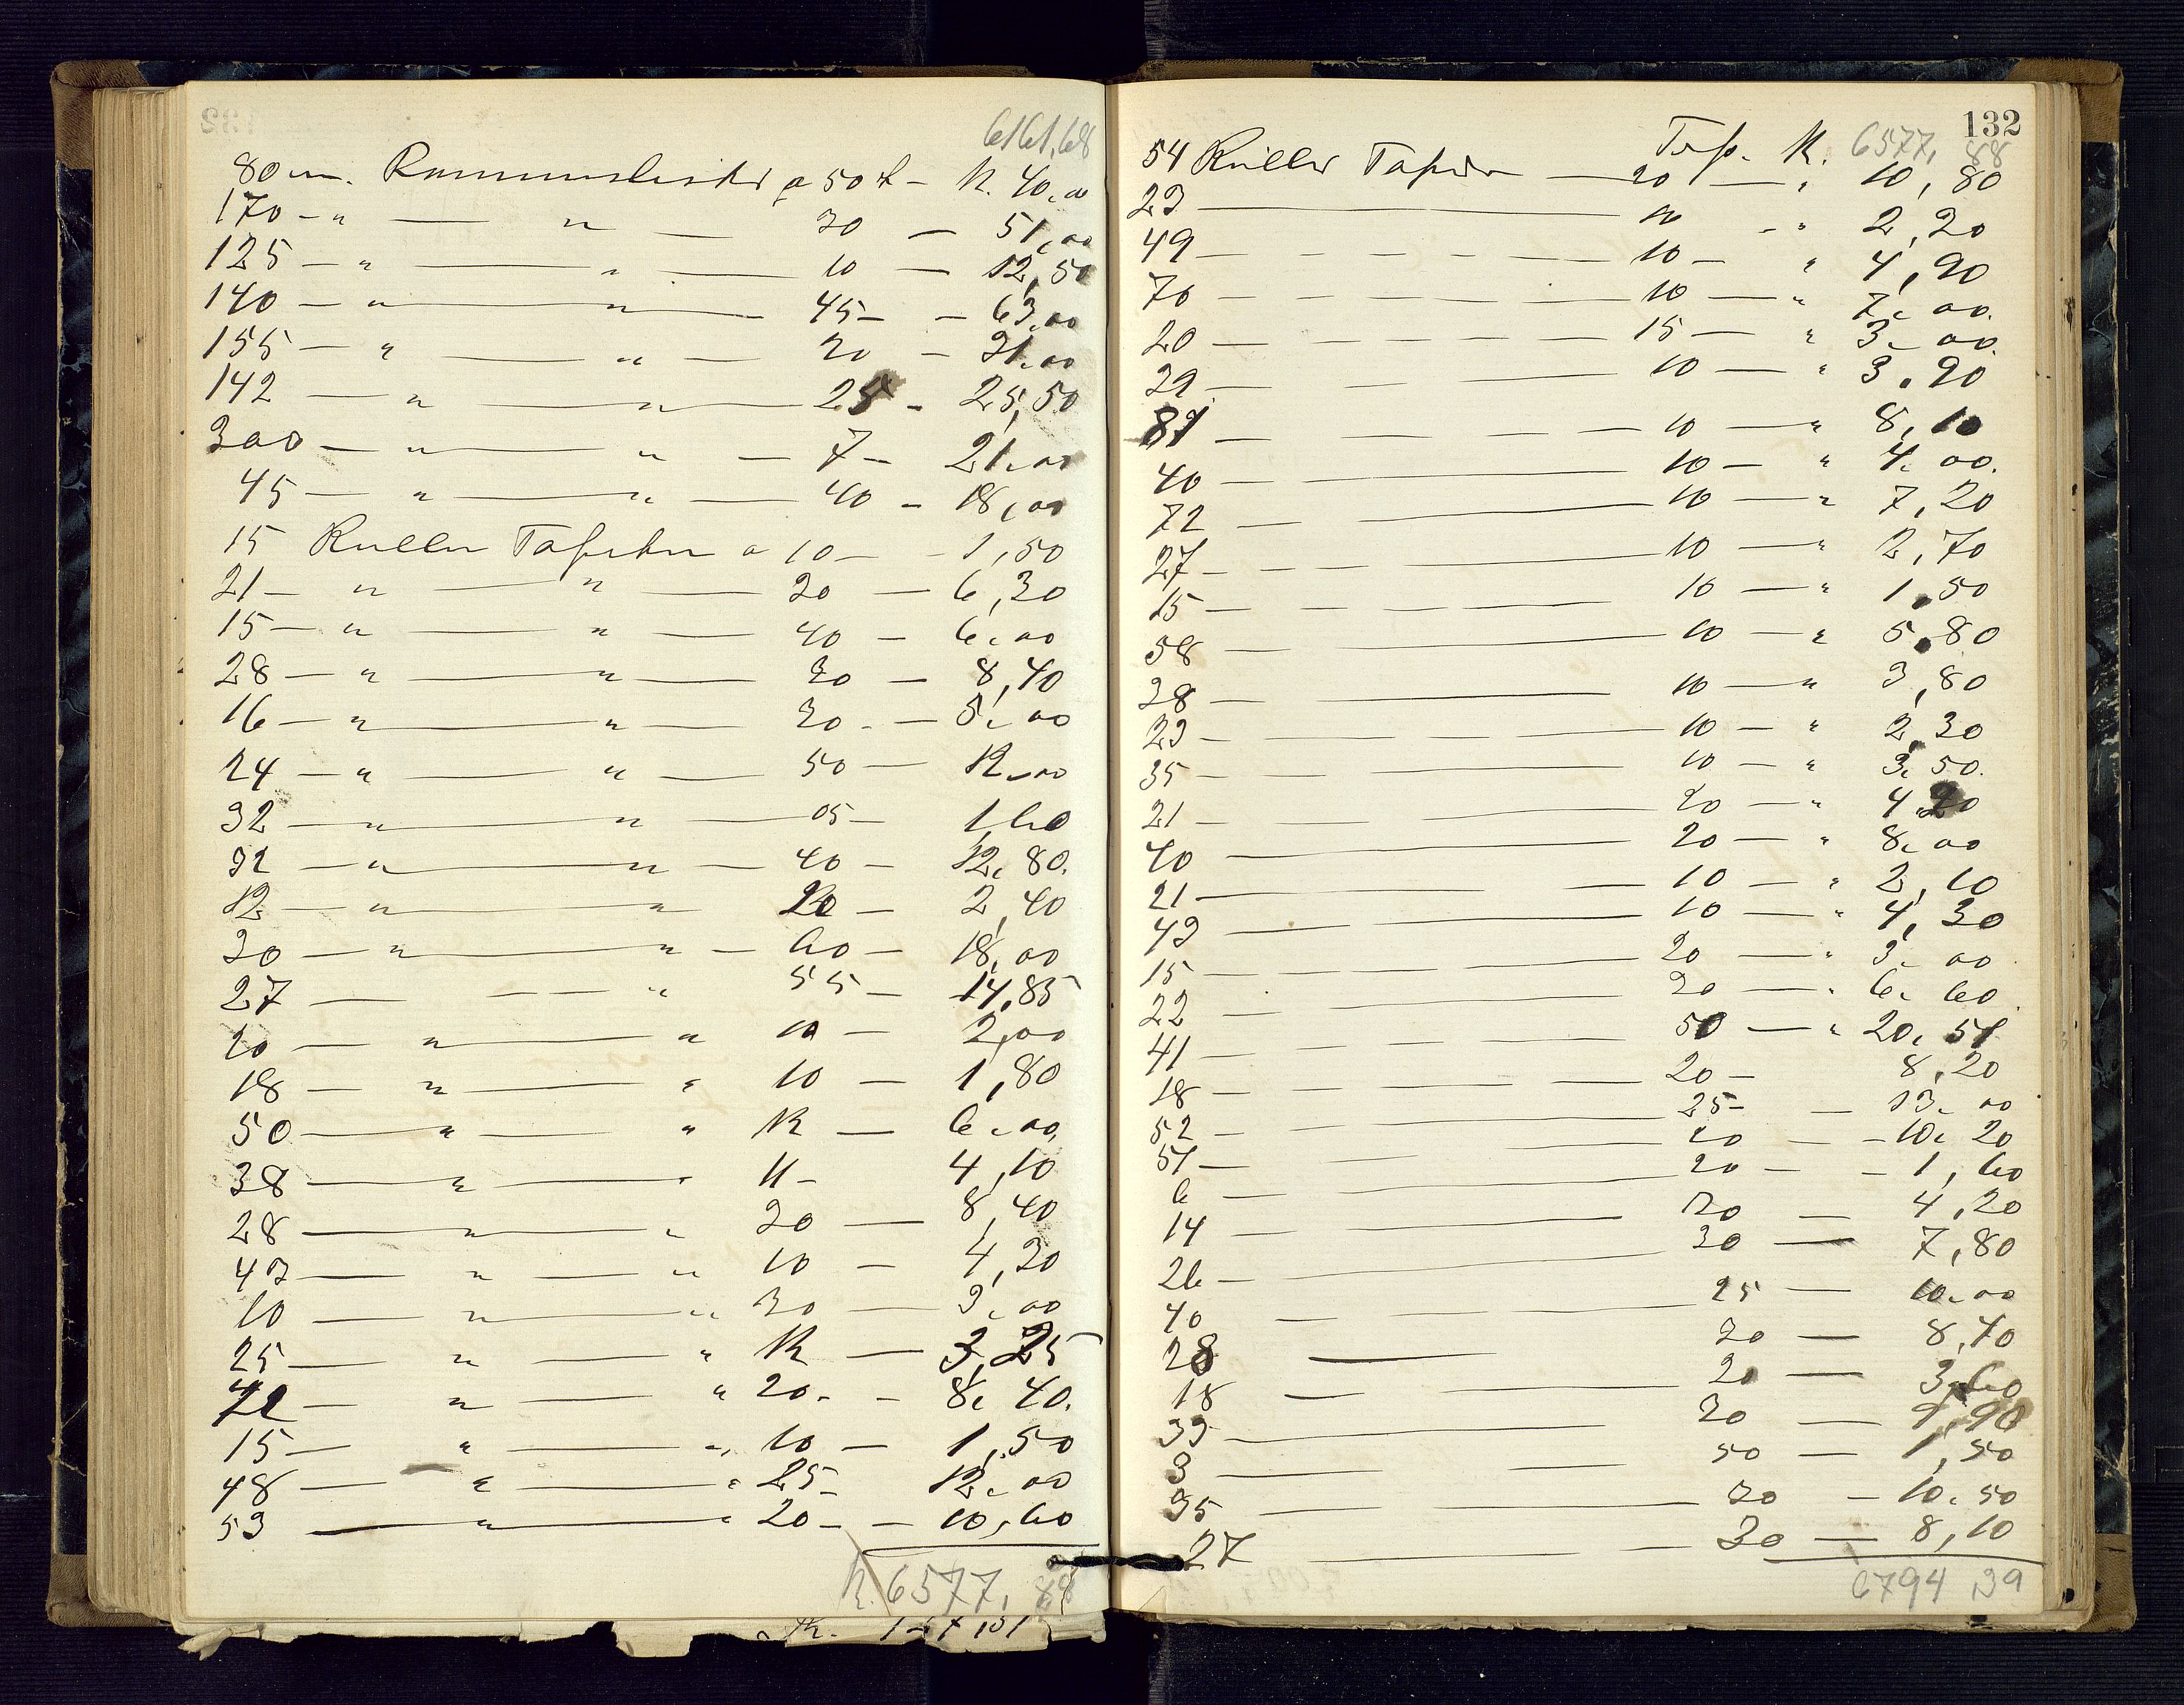 6161,68
80 m. Rammelister a 50 k - K. 40,00
170 - " — " — 30 — 51,00
125 - " — " — 10 — 12,50
140 - " — " — 45 - - 63,00
155 - " — " — 20 - 31,00
142 — " — " — 25 - 25,50
300 — " — " — 7 - 21,00
45 — " — " — 40 - 18,00
15 Ruller Tapeter a 10 — - 1,50
21 - " — " — 30 — 6,30
15 — " — " — 40 — 6,00
28 — " — " — 30 — 8,40
16 — " — " — 30 - — 5,00
24 — " — " — 50 — 12,00
32 — " — " — 05 - 1,60
32 — " — " — 40 — 12,80.
12 — " — " 20 — 2,40
30 — " — " — 60 — 18,00
27 — — — " 55 — 14,85
20 — " — " 10 — 2,00
18 — " — " 10 — 1,80
50 — " — " 12 — 6,00
38 — " — " 11 - 4,10
28 — " — " 30 — 8,40
43 — " — " 10 — 4,30
10 — " — " 30 — 3,00
25 — " — " 12 — 3,25
42 — " — " 20 - - 8,40.
15 — " — " 10 — 1,50
48 — " — " 25 - 12,00
53 — " — " 20 - - 10,60
K. 6577,88
132
Trp. K. 6577,88
54 Ruller Tapeter — 20 — " 10,80
23 — 10 - " 2,20
49 — 10 - " 4,90
70 — 10 — " 7,00.
20 — 15 — " 3,00.
39 — 10 — " 3,90
81 — 10 — " 8,10
40 — 10 — " 4,00.
72 — 10 — " 7,20
27 — 10 — " 2,70
15 — 10 — " 1,50
58 — 10 — " 5,80
38 — 10 — " 3,80
23 — 10 — " 2,30
35 — 10 — " 3,50.
21 — 20 — " 4,20
40 — 20 — " 8,00
21 — 10 — " 2,10
43 — 10 — " 4,30
15 — 20 — " 3,00
22 — 30 — " 6,60
41 — 50 — " 20,51
18 — 20 - 8,20
52 — 25 - — 13,00
51 — 20 — - 10,20
6 — 20 — - 1,60
14 — 30 — 4,20
26 — 30 — 7,80
40 — 25 — 10,00
28 — 30 — 8,40
18 — 20 — 3,60
33 — 30 — 9,90
3 — 50 — 1,50
35 — 30 — 10,50
27 — 30 — 8,10
6794,39